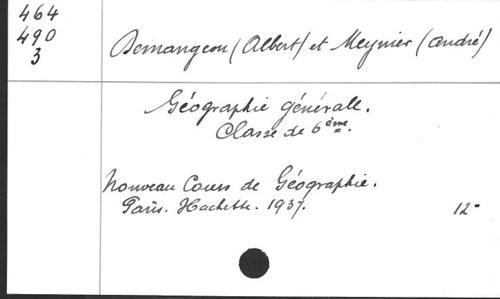 464
490
3
Demangeon (Albert) et Meynier (André)
Géographie générale.
Classe de 6ème.
Nouveau Cours de Géographie.
Paris. Hachette. 1937. 12°